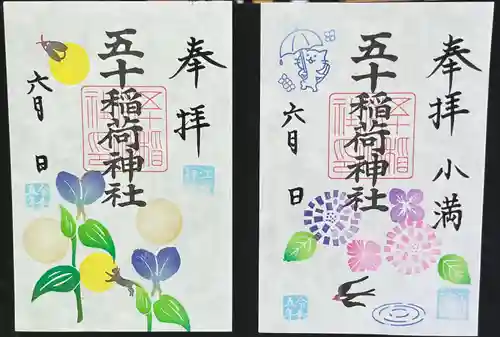 奉拝
五十稲荷神社
六月 日
奉拝 小満
五十稲荷神社
六月 日